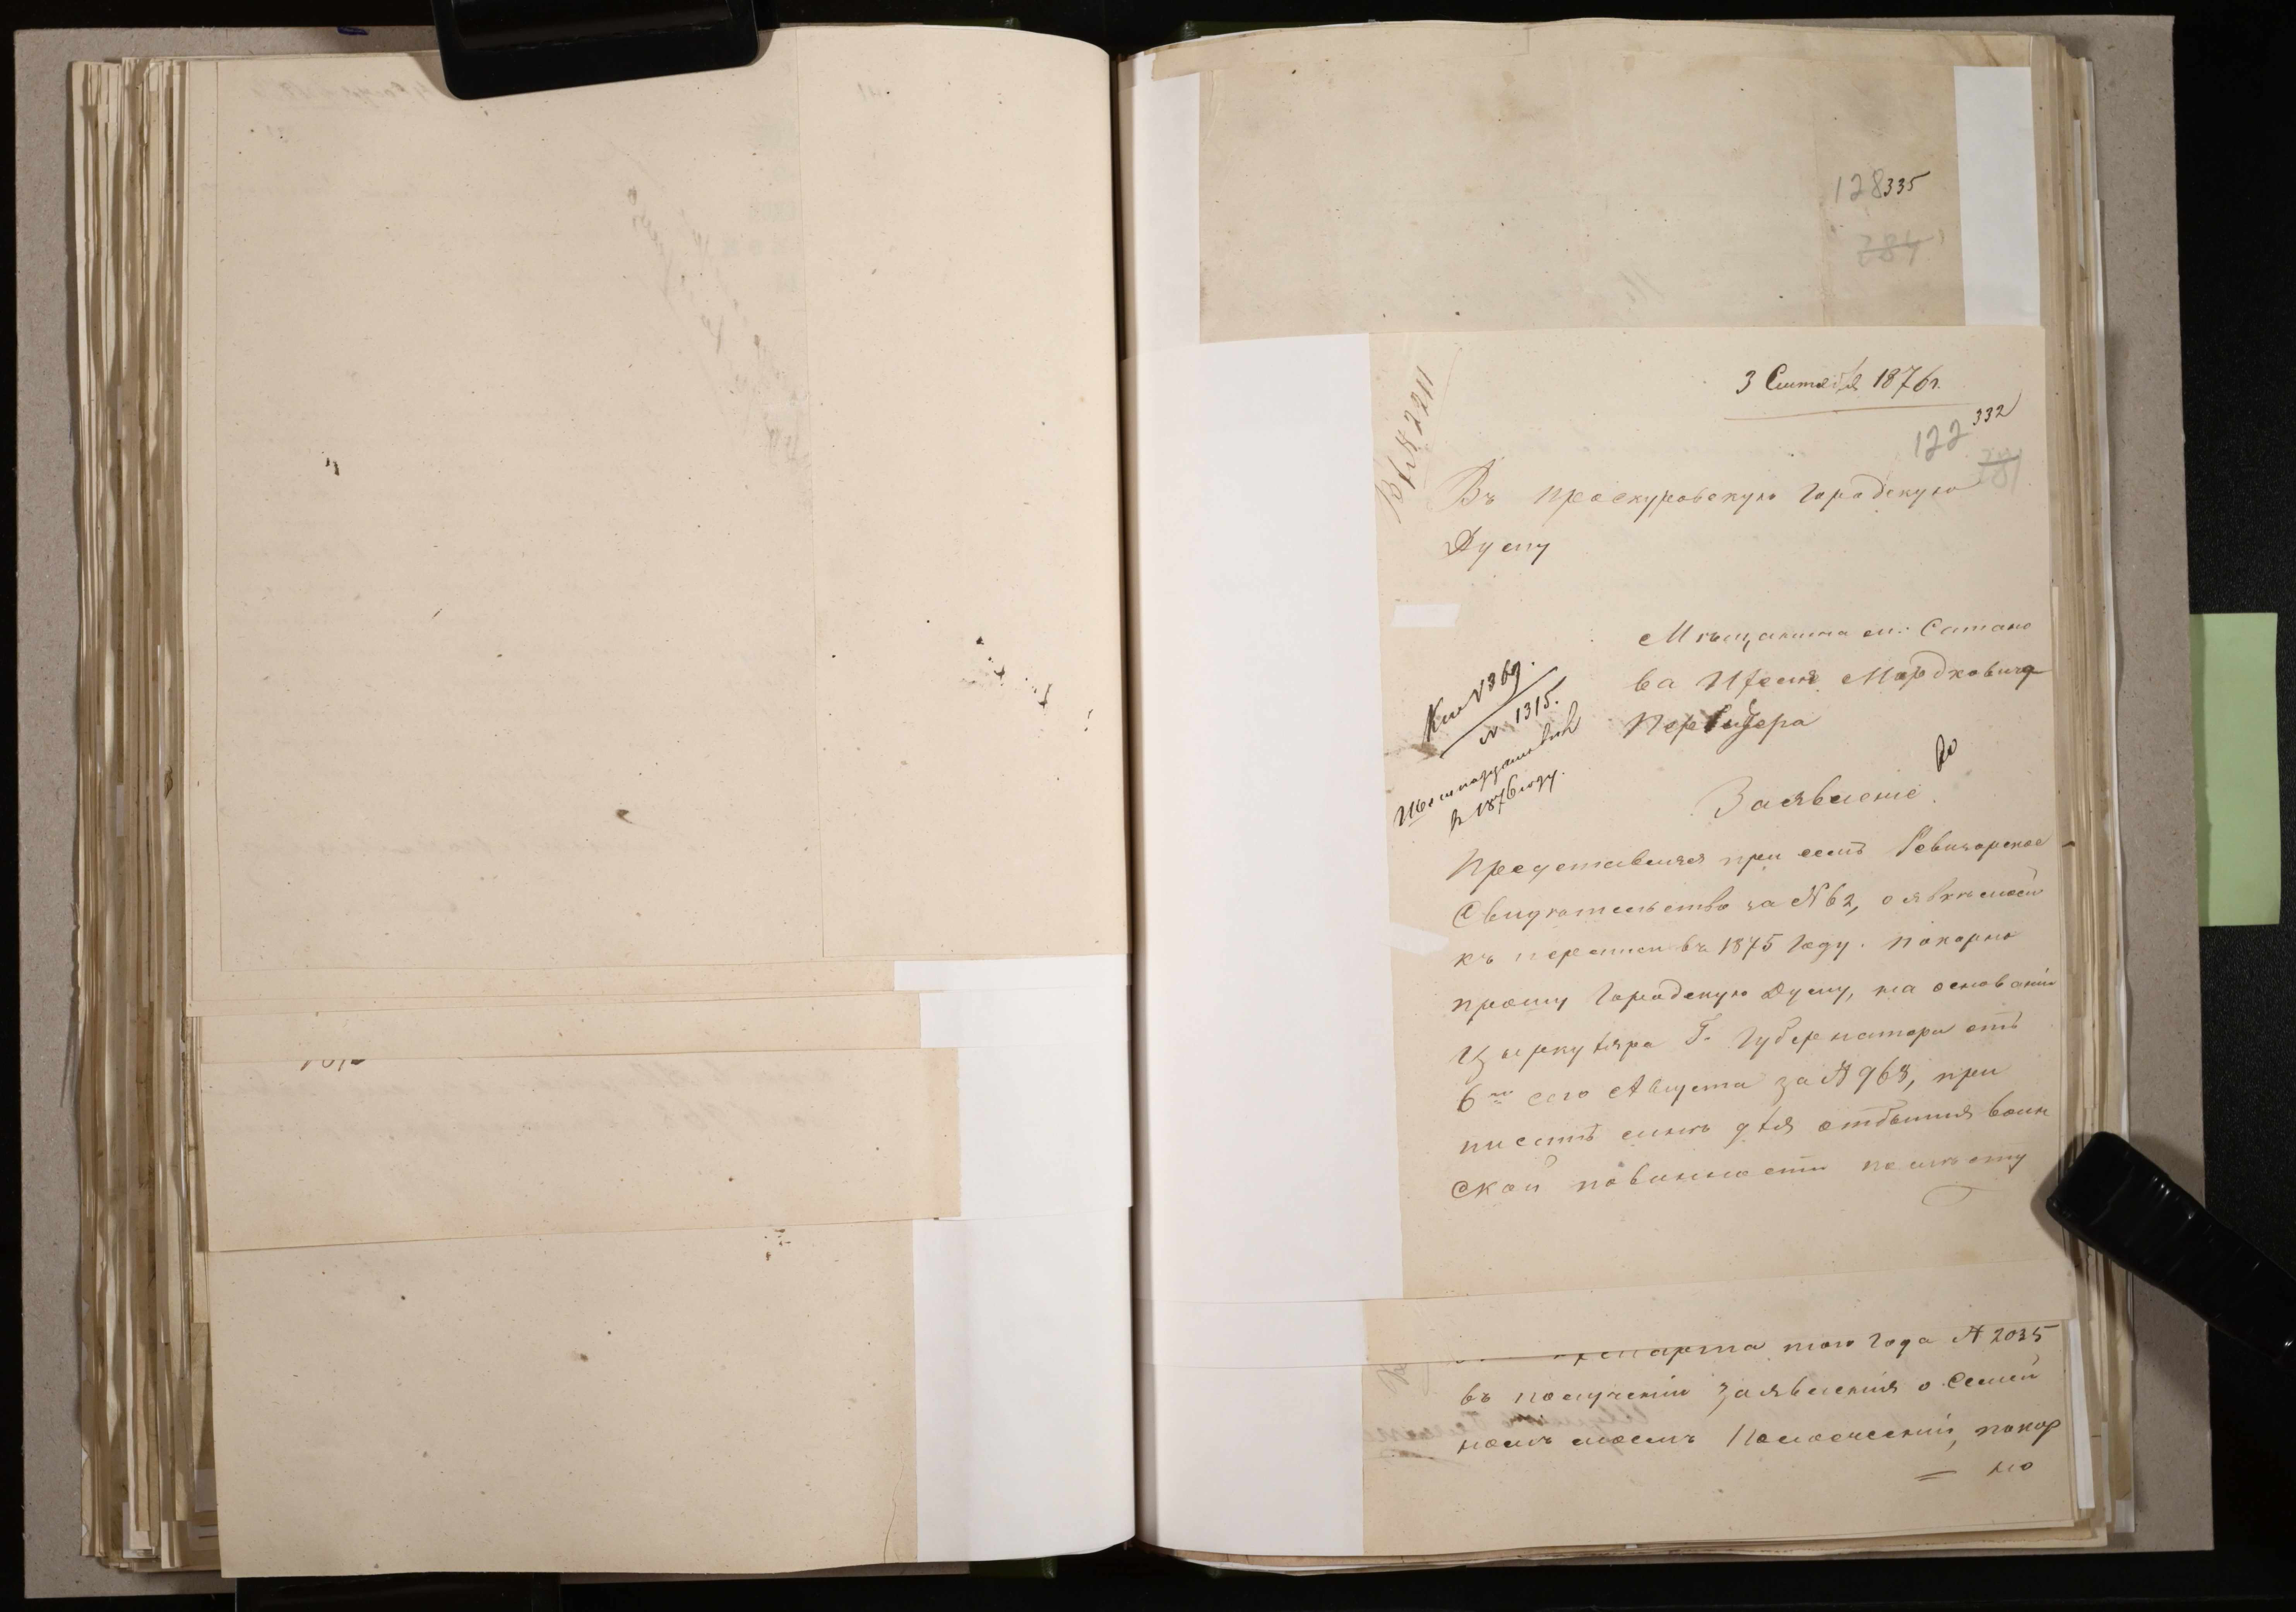 128 335
284
3 Сентября 1876 г.
332
122
281
Вх № 2211
Въ Проскуровскую Городскую
Думу
Мѣщанина м: Сатано
ва Ицка Мордковича
Перельгера
№ 369.
№ 1315.
в 1876 году.
Заявленіе
Представляя при семъ Ревизорское
Свидѣтельство за № 62, о явкѣ моей
къ переписи въ 1875 году. покорно
прошу Городскую Думу, на основаніи
Циркуляра Г. Губернатора отъ
6го сего Августа за № 963, при
писать меня для отбытія воин
ской повинности по мѣсту
марта того года № 2035
въ полученіи заявленія о Семей
номъ моемъ Положеніи, покор
но